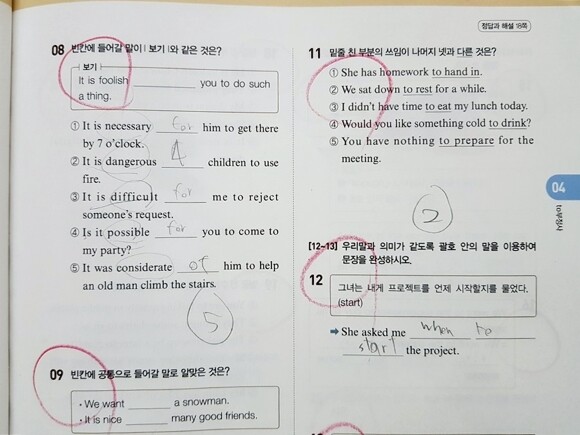 정답과 해설 18쪽
08 빈칸에 들어갈 말이 |보기|와 같은 것은?
보기
It is foolish ______ you to do such
a thing.
① It is necessary for him to get there
by 7 o'clock.
② It is dangerous 4 children to use
fire.
③ It is difficult for me to reject
someone's request.
④ Is it possible for you to come to
my party?
⑤ It was considerate of him to help
an old man climb the stairs.
5
09 빈칸에 공통으로 들어갈 말로 알맞은 것은?
• We want ______ a snowman.
• It is nice ______ many good friends.
11 밑줄 친 부분의 쓰임이 나머지 넷과 다른 것은?
① She has homework to hand in.
② We sat down to rest for a while.
③ I didn't have time to eat my lunch today.
④ Would you like something cold to drink?
⑤ You have nothing to prepare for the
meeting.
2
04
to부정사
[12~13] 우리말과 의미가 같도록 괄호 안의 말을 이용하여
문장을 완성하시오.
12
그녀는 내게 프로젝트를 언제 시작할지를 물었다.
(start)
➡ She asked me when to
start the project.